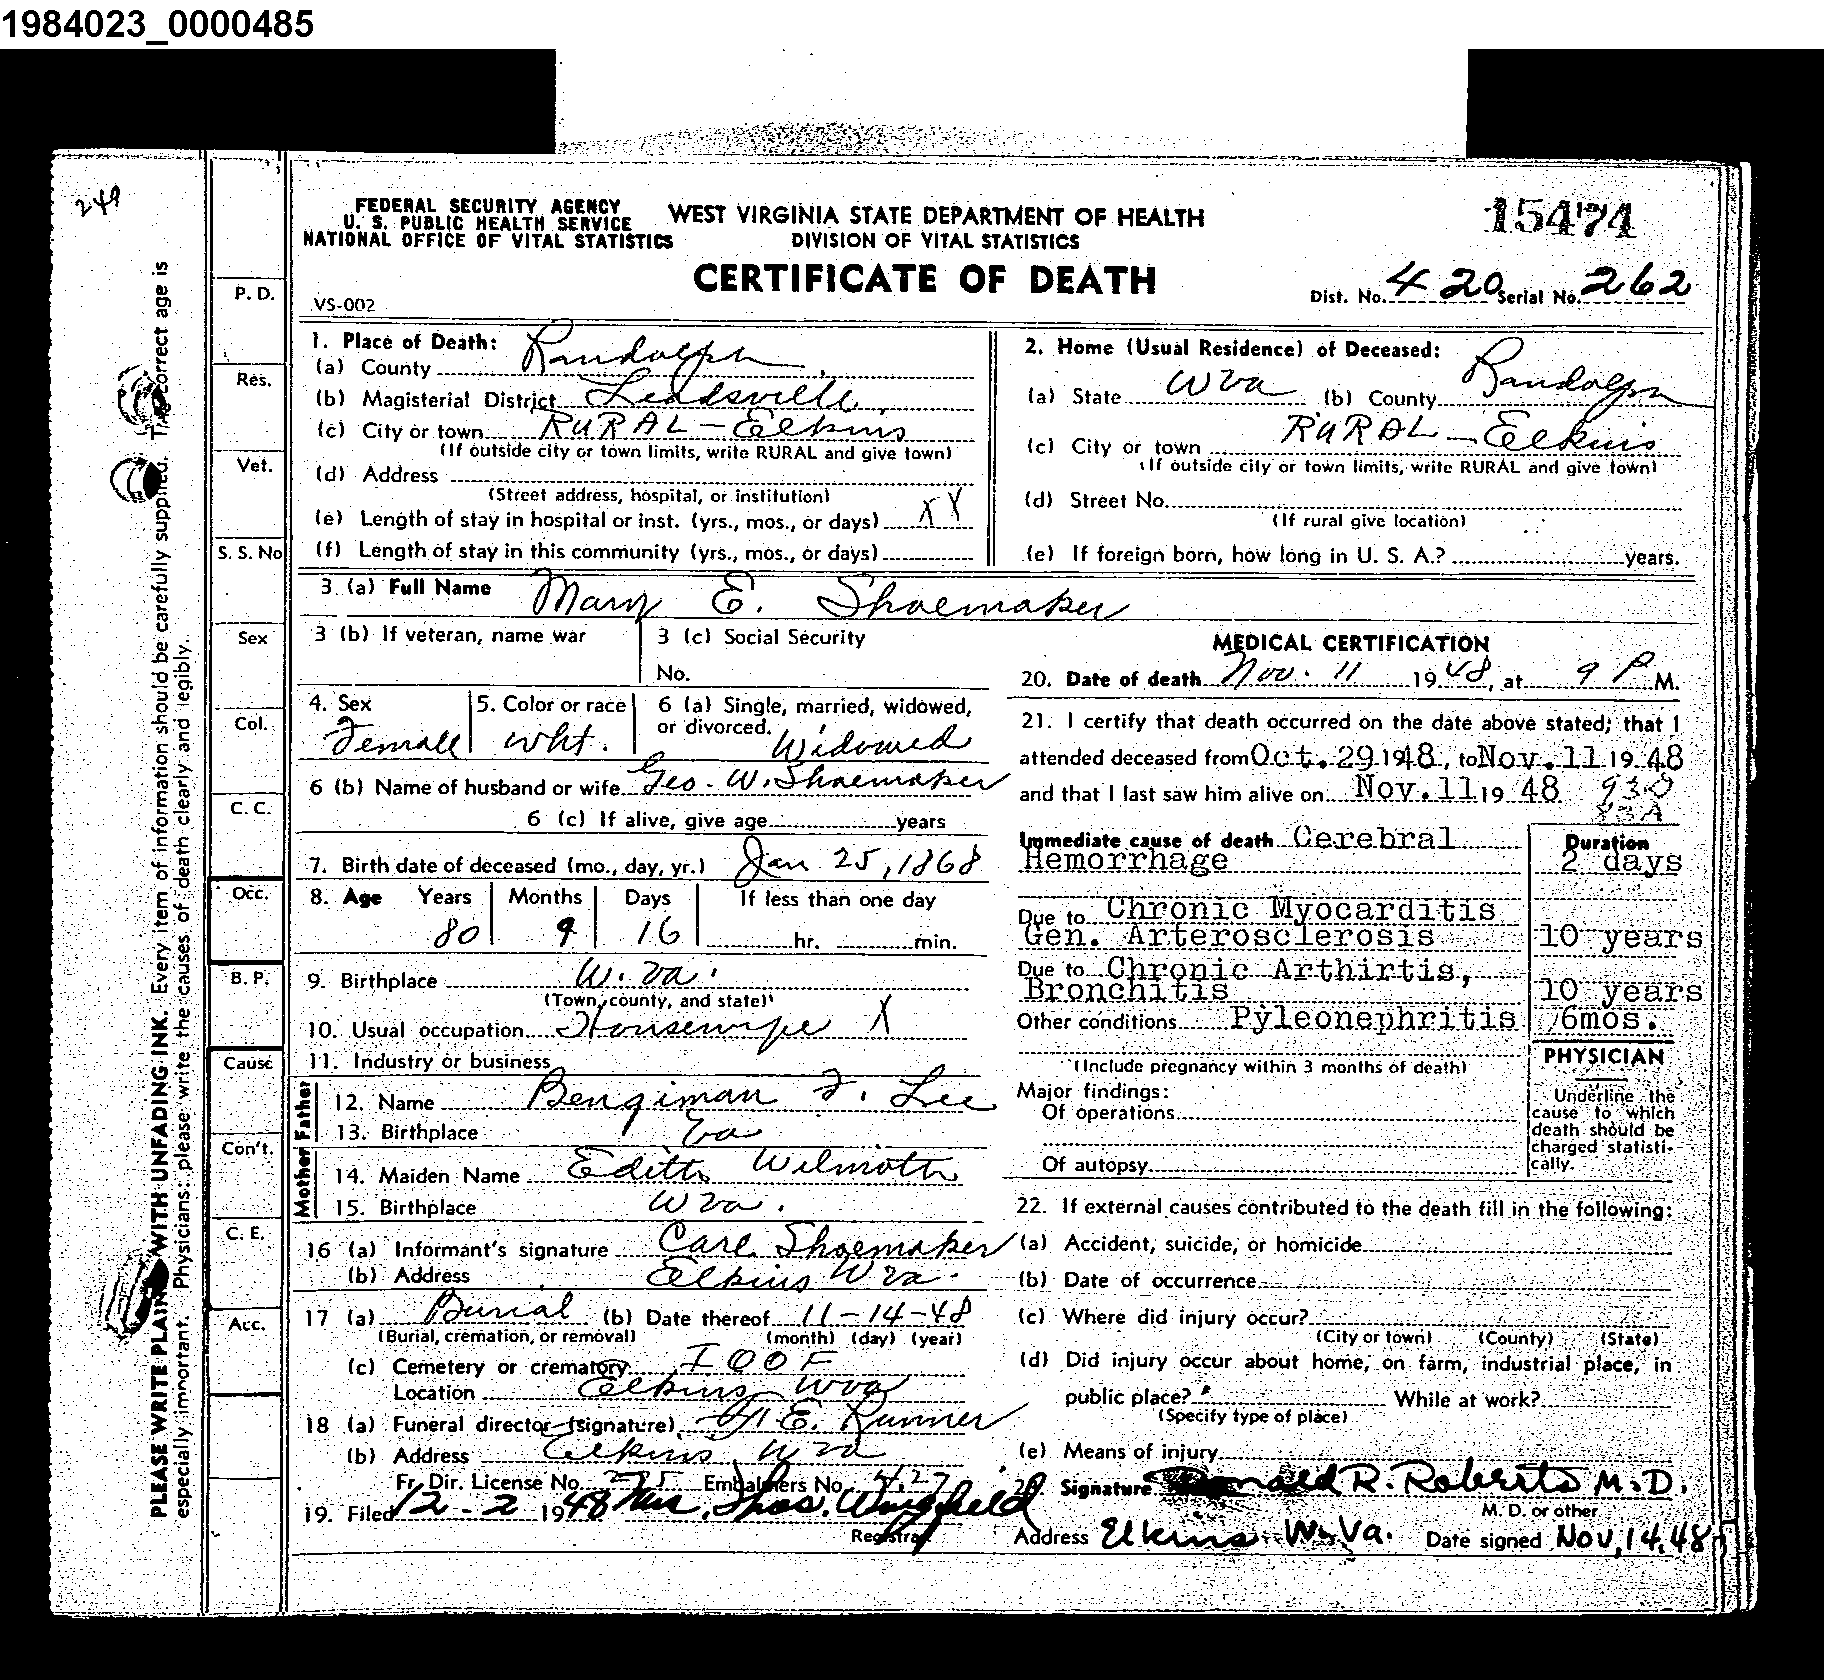 1984023_0000485
249
FEDERAL SECURITY AGENCY
U. S. PUBLIC HEALTH SERVICE
NATIONAL OFFICE OF VITAL STATISTICS
WEST VIRGINIA STATE DEPARTMENT OF HEALTH
DIVISION OF VITAL STATISTICS
CERTIFICATE OF DEATH
15474
Dist. No. 420 Serial No. 262
VS-002
PLEASE WRITE PLAIN WITH UNFADING INK. Every item of information should be carefully supplied. The correct age is
especially important. Physicians: please write the causes of death clearly and legibly.
P. D.
Res.
Vet.
S. S. No
Sex
Col.
C. C.
Occ.
B. P.
Cause
Con't.
C. E.
Acc.
1. Place of Death:
(a) County Randolph
(b) Magisterial District Leadsville
(c) City or town RURAL - Elkins
(If outside city or town limits, write RURAL and give town)
(d) Address
(Street address, hospital, or institution)
(e) Length of stay in hospital or inst. (yrs., mos., or days) XX
(f) Length of stay in this community (yrs., mos., or days)
2. Home (Usual Residence) of Deceased:
(a) State W Va (b) County Randolph
(c) City or town RURAL - Elkins
(If outside city or town limits, write RURAL and give town)
(d) Street No.
(If rural give location)
(e) If foreign born, how long in U. S. A.? years.
3 (a) Full Name Mary E. Shoemaker
3 (b) If veteran, name war
3 (c) Social Security
No.
4. Sex
Female
5. Color or race
Wht.
6 (a) Single, married, widowed,
or divorced. Widowed
6 (b) Name of husband or wife Geo. W. Shoemaker
6 (c) If alive, give age years
7. Birth date of deceased (mo., day, yr.) Jan 25, 1868
8. Age Years Months Days If less than one day
80 9 16 hr. min.
9. Birthplace W. Va.
(Town, county, and state)
10. Usual occupation Housewife X
11. Industry or business
Father
12. Name Bengiman F. Lee
13. Birthplace Va
Mother
14. Maiden Name Edith Wilmoth
15. Birthplace W Va.
16 (a) Informant's signature Carl Shoemaker
(b) Address Elkins W Va.
17 (a) Burial (b) Date thereof 11-14-48
(Burial, cremation, or removal) (month) (day) (year)
(c) Cemetery or crematory IOOF
Location Elkins W Va
18 (a) Funeral director (signature) E. Runner
(b) Address Elkins W Va
Fr. Dir. License No. Embalmers No. 427
19. Filed 12-2 1948 Mrs. Thos. Wingfield
Registrar
MEDICAL CERTIFICATION
20. Date of death Nov. 11 1948, at 9 P M.
21. I certify that death occurred on the date above stated; that I
attended deceased from Oct. 29 1948, to Nov. 11 1948
and that I last saw him alive on Nov. 11, 19 48 930
83A
Immediate cause of death Cerebral
Hemorrhage
Duration
2 days
Due to Chronic Myocarditis
Gen. Arterosclerosis 10 years
Due to Chronic Arthirtis,
Bronchitis 10 years
Other conditions Pyleonephritis 6mos.
(Include pregnancy within 3 months of death)
Major findings:
Of operations
Of autopsy
PHYSICIAN
Underline the
cause to which
death should be
charged statisti-
cally.
22. If external causes contributed to the death fill in the following:
(a) Accident, suicide, or homicide
(b) Date of occurrence
(c) Where did injury occur?
(City or town) (County) (State)
(d) Did injury occur about home, on farm, industrial place, in
public place? While at work?
(Specify type of place)
(e) Means of injury
Signature Donald R. Roberts M.D.
M. D. or other
Address Elkins W. Va. Date signed Nov, 14, 48